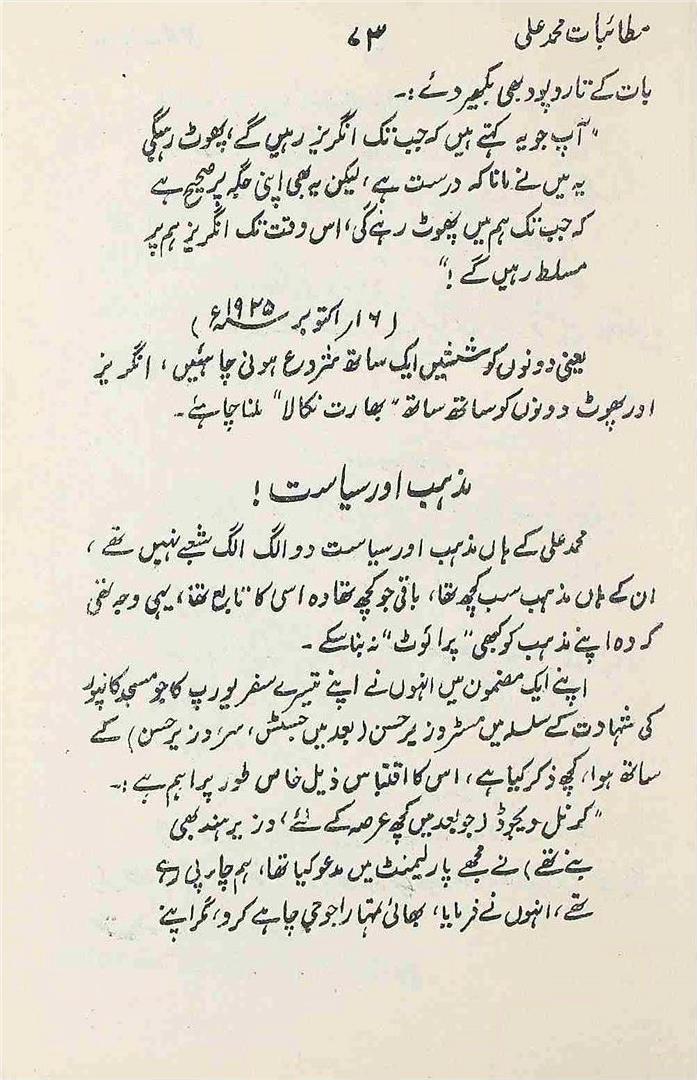 مطائبات محمد علی
۷۳
بات کے تار و پود بھی بکھیر دئے :۔
"آپ جو یہ کہتے ہیں کہ جب تک انگریز رہیں گے، پھوٹ رہیگی
یہ میں نے مانا کہ درست ہے، لیکن یہ بھی اپنی جگہ پر صحیح ہے
کہ جب تک ہم میں پھوٹ رہے گی، اس وقت تک انگریز ہم پر
مسلط رہیں گے !"
(۱۶ اکتوبر ۱۹۲۵ء)
یعنی دونوں کوششیں ایک ساتھ شروع ہونی چاہئیں، انگریز
اور پھوٹ دونوں کو ساتھ ساتھ "بھارت نکالا" ملنا چاہئے۔
مذہب اور سیاست !
محمد علی کے ہاں مذہب اور سیاست دو الگ الگ شعبے نہیں تھے،
ان کے ہاں مذہب سب کچھ تھا، باقی جو کچھ تھا وہ اسی کا تابع تھا، یہی وجہ تھی
کہ وہ اپنے مذہب کو کبھی "پرائوٹ" نہ بنا سکے۔
اپنے ایک مضمون میں انہوں نے اپنے تیسرے سفر یورپ کا جو مسجد کانپور
کی شہادت کے سلسلہ میں مسٹر وزیر حسن (بعد میں جسٹس، سر، وزیر حسن) کے
ساتھ ہوا، کچھ ذکر کیا ہے، اس کا اقتباس ذیل خاص طور پر اہم ہے :۔
"کرنل ویجوڈ (جو بعد میں کچھ عرصہ کے لئے، وزیر ہند بھی
بنے تھے) نے مجھے پارلیمنٹ میں مدعو کیا تھا، ہم چاء پی رہے
تھے، انہوں نے فرمایا، بھائی تمہارا جو جی چاہے کرو، مگر اپنے